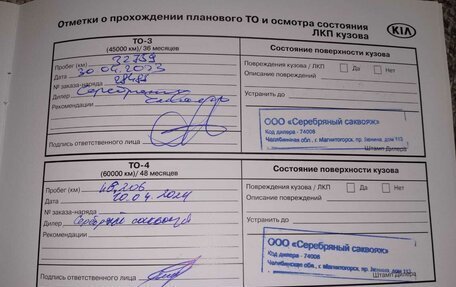 Отметки о прохождении планового ТО и осмотра состояния
ЛКП кузова
KIA
ТО-3
(45000 км)/ 36 месяцев
Состояние поверхности кузова
Пробег (км) 32759
Дата 30.04.2023
№ заказа-наряда
Дилер Серебряный
саквояж
Рекомендации
Подпись ответственного лица
Повреждения кузова / ЛКП Да Нет
Описание повреждений
Устранить до
ООО «Серебряный саквояж»
Код дилера - 74008
Челябинская обл., г. Магнитогорск, пр. Ленина, дом 113
Штамп Дилера
ТО-4
(60000 км)/ 48 месяцев
Состояние поверхности кузова
Пробег (км) 48206
Дата 20.04.2024
№ заказа-наряда
Дилер Серебряный саквояж
Рекомендации
Подпись ответственного лица
Повреждения кузова / ЛКП Да Нет
Описание повреждений
Устранить до
ООО «Серебряный саквояж»
Код дилера - 74008
Челябинская обл., г. Магнитогорск, пр. Ленина, дом 113
Штамп Дилера